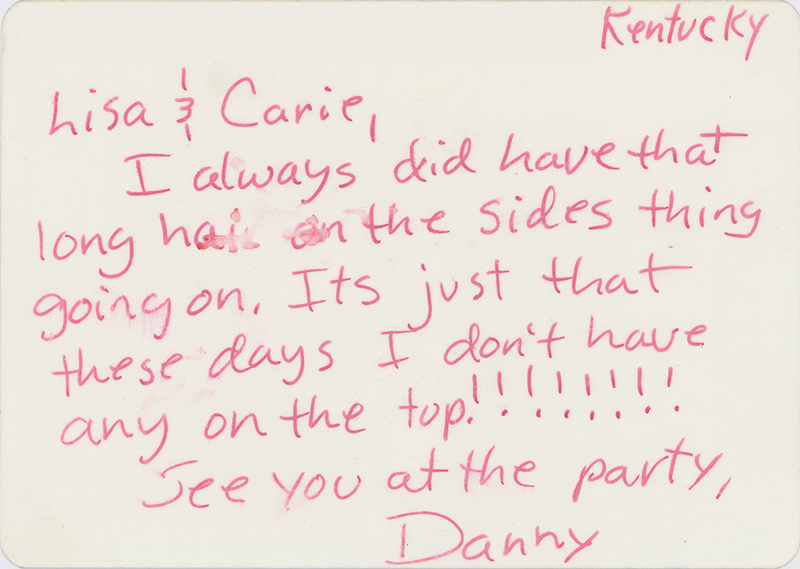 Kentucky
Lisa & Carie,
I always did have that
long hair on the sides thing
going on. Its just that
these days I don't have
any on the top!!!!!!!!!
See you at the party,
Danny